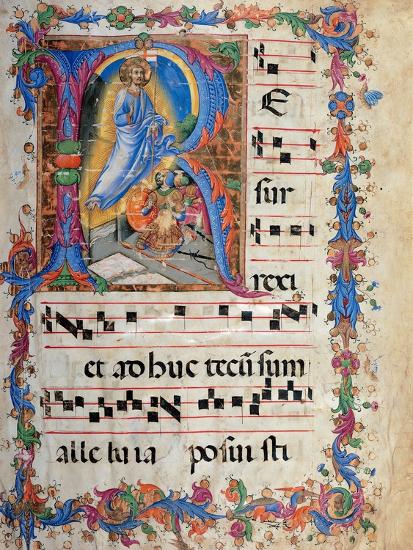 R
E
sur
rexi
et adhuc tecū sum
alleluia posuisti